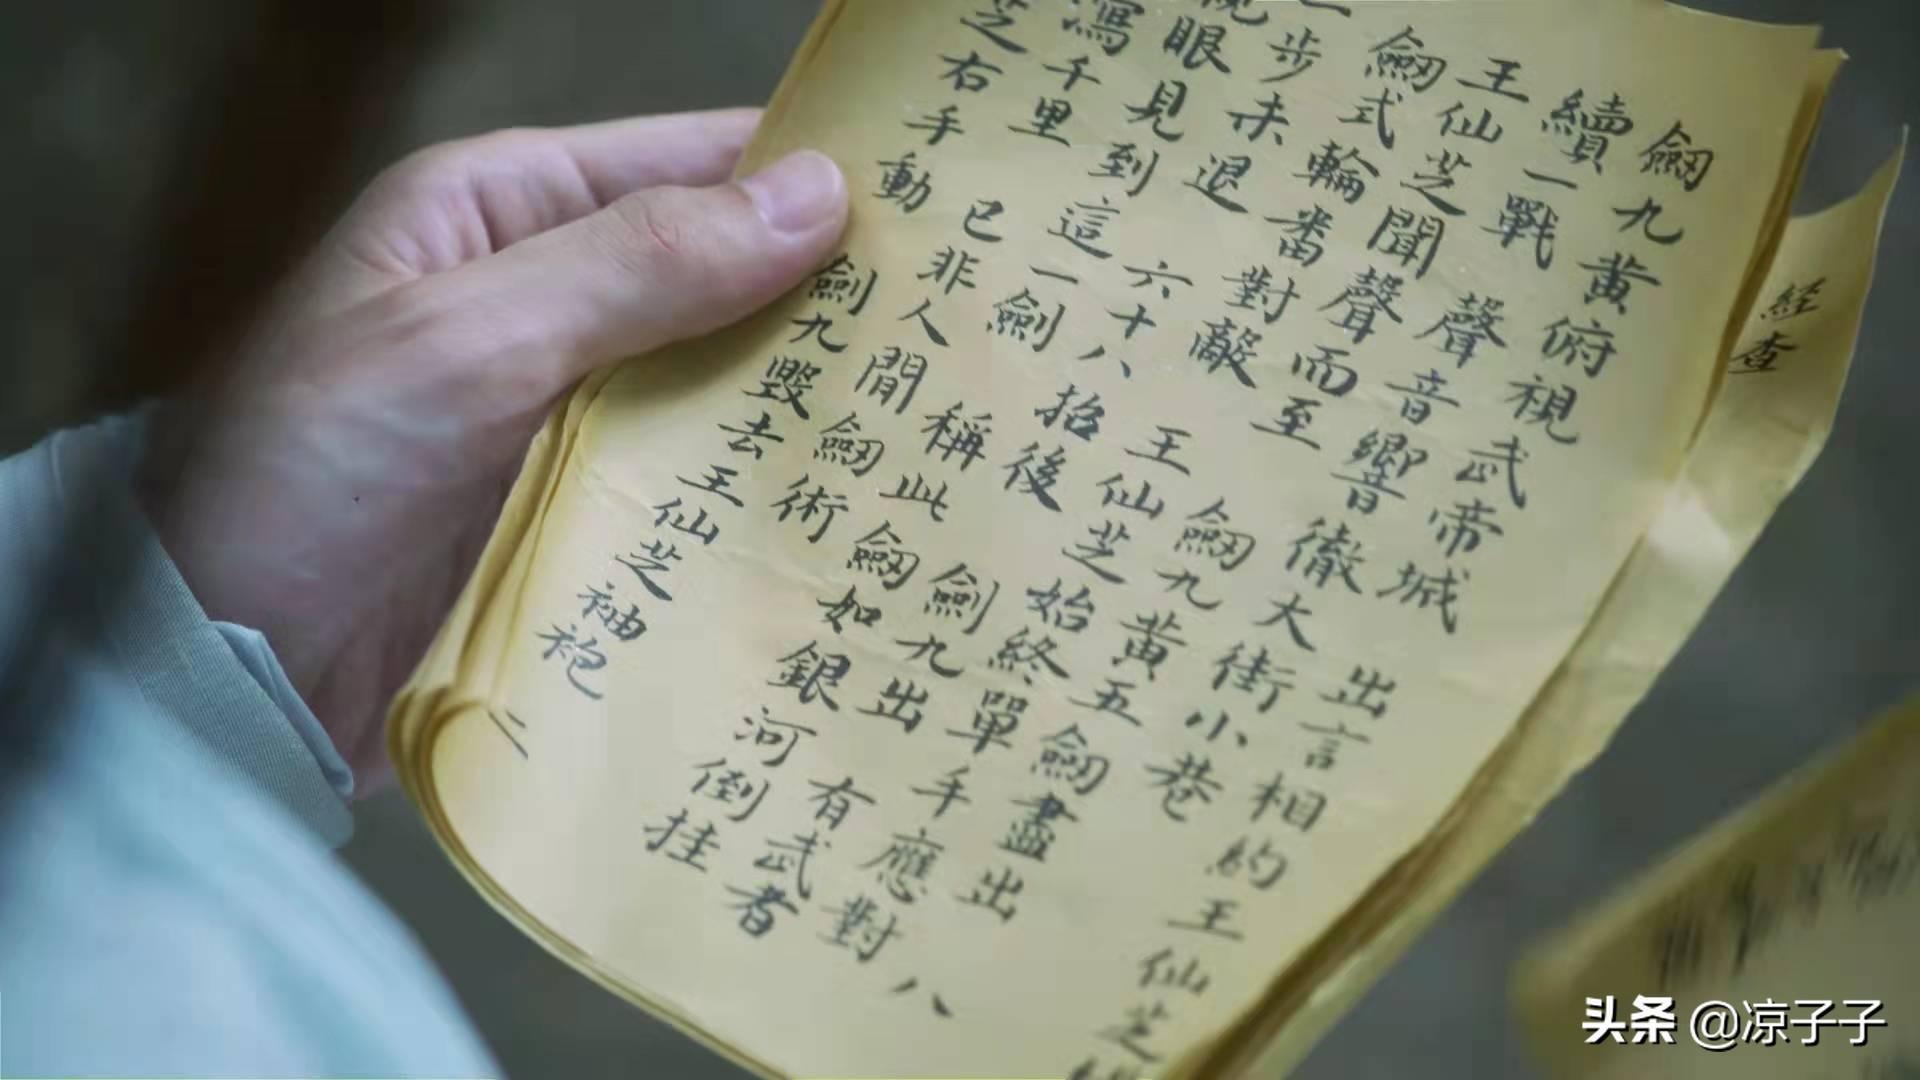 經查
劒九黄俯視武帝城 出言相約王仙芝
續一戰 聲音響徹大街小巷
王仙芝聞聲而至 劒九黄五劒盡出 八
劒式輪番對敵 王仙芝始終單手應對
一步未退 六十八招後 劍九出 有武者
眼見到這一劍 稱此劒如銀河倒挂
瀉千里 已非人間劒術
芝右手動 劍九毀去王仙芝袖袍 二
头条 @凉子子